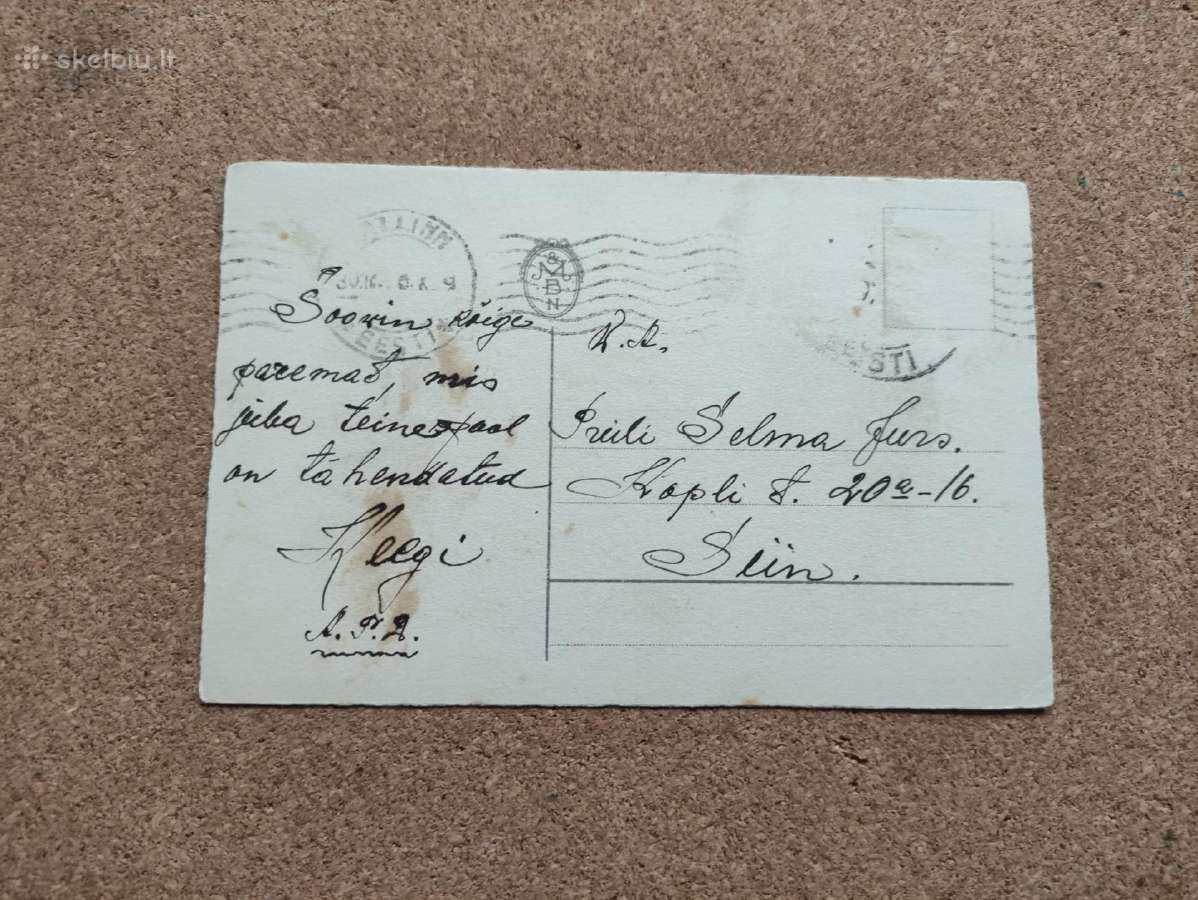 skelbiu.lt
TALLINN
EESTI
& M B N
EESTI
Soovin kõige
paremat, mis
juba teinepool
on tahendatud
Keegi
K.A.
Preili Selma Jurs.
Kopli t. 20a-16.
Siin.